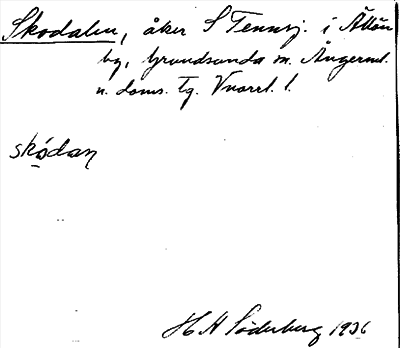 Skodalen, åker S Tennsj. i Ällön
by, Grundsunda sn. Ångerml.
n. doms. tg. Vnorrl. l.
skódaṇ
H H Söderberg 1936